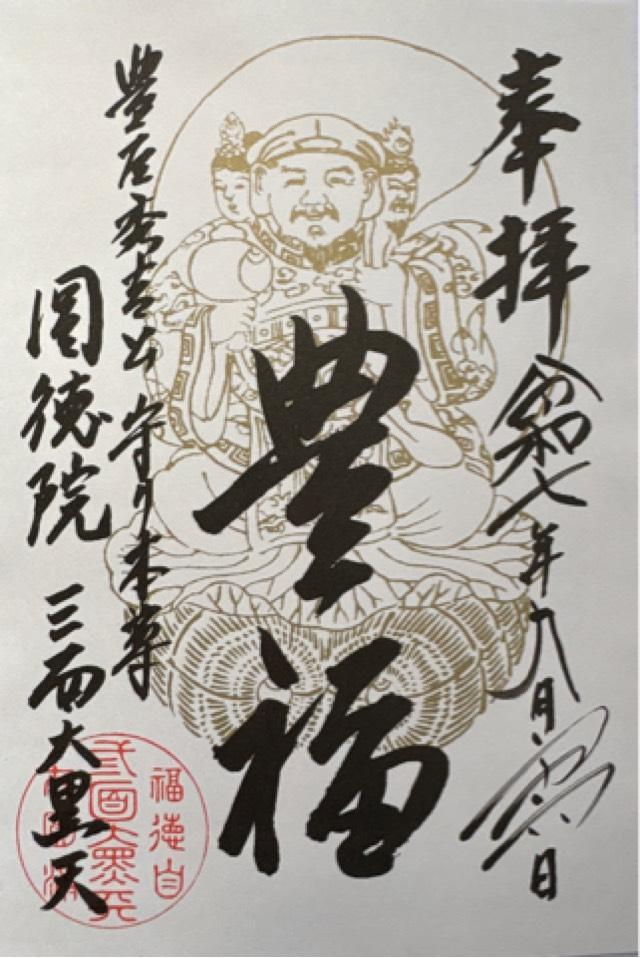 奉拝
令和七年九月
日
豊福
豊臣秀吉公 守り本尊
圓徳院 三面大黒天
福徳自
三面大黒天